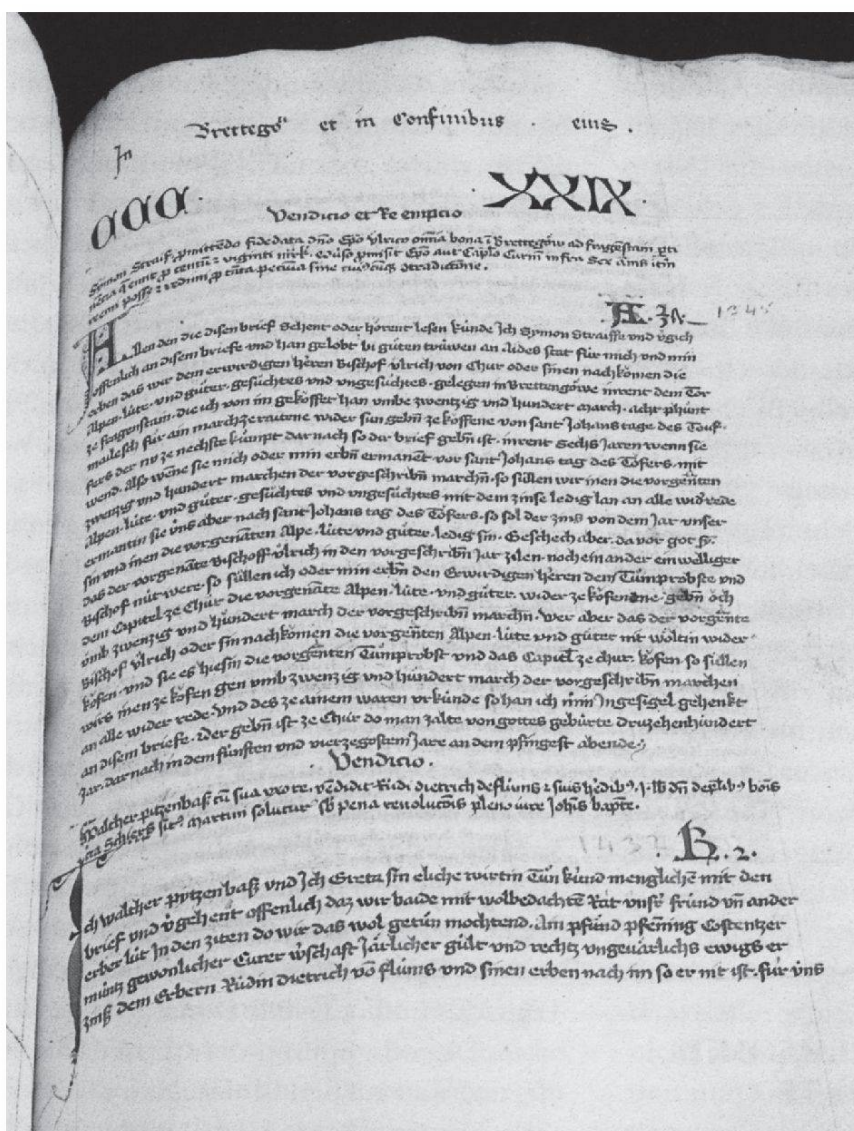 In Brettegöw et in Confinibus . eius .
aaa. XXIX.
Vendicio et Re empcio
Symon Straiff pmittendo fide data dño Epo Ulrico omnia bona
centum viginti mrk. Sex
posse sine
.A. 1345
Allen den die disen brief Sehent oder hörent lesen künde Ich Symon Straiffe und vgich
offenlich an disem briefe und han gelobt bi güten trüwen an aides stat für mich und min
erben das wir dem erwirdigen herren Bischof Ulrich von Chur oder sinen nachkomen die
Alpen. lüte. und güter. gesüchtes und ungesüchtes. gelegen in Brettengöwe inrent dem Tor
ze fragenstain. die ich von im geköffet han umbe zwentzig und hundert march. acht phunt
mailesch für ain march ze raitene wider süln gebn ze köffene von sant Johans tage des Touf-
fers der nv ze nechste kümpt dar nach so dir brief gebn ist. inrent Sechs Jaren wenn sie
wend. Also wene sie mich oder min erbn ermanent vor sant Johans tag des Töfers. mit
zwenzig und hundert marchen der vorgeschribn marchn. so süllen wir inen die vorgenten
Alpen. lüte. und güter. gesüchtes und ungesüchtes mit dem zinse ledig lan an alle widrede
ermantin sie üns aber nach sant Johans tag des Töfers. so sol der zins von dem Jar unser
sin und inen die vorgenäten Alpe. lüte und güter. ledig sin. Geschech aber. da vor got
das der vorgenäte Bischoff Ulrich in den vorgeschribn Jar zilen. noch ein ander einwelliger
Bischof nüt were. so süllen ich oder min erbn den Erwirdigen herren dem Tümprobste und
dem Capitel ze Chur die vorgenäte Alpen. lüte. und güter. wider ze köfenene. gebn öch
umb zwenzig und hundert march der vorgeschribn marchn. Wer aber das der vorgente
Bischof Ulrich oder sin nachkomen die vorgenten Alpen. lüte und güter nit woltin wider
köfen. und sie es hiesin die vorgenten Tümprobst und das Capitel ze chur. köfen. so süllen
wirs inen ze köfen gen umb zwenzig und hundert march der vorgeschribn marchen
an alle wider rede und des ze ainem waren urkünde so han ich min Ingesigel gehenkt
an disem briefe. der gebn ist ze Chur do man zalte von gottes gebürte druzehenhundert
Jar. dar nach in dem fünften und vierzegostem Jare an dem pfingest abende.
Vendicio.
Walcher pitzenbaß cu sua uxore. vendidit Rüdi Dietrich de flums
Schiers Martini solutur pena pleno iure Johis bapte.
1437 .B. 2.
Ich walcher pytzenbaß und Ich Greta sin eliche wirtin Tün kund menglichem mit den
brief und vgehent offenlich daz wir baide mit wolbedachtem Rät unsr fründ un ander
erber lüt In den ziten do wir das wol getün mochtend. Am pfund pfenning Costentzer
müntz gewonlicher Curer wschaft Järlicher gült und rechtz ungeuarlichs ewigs
zinß dem Erbern Rüdin Dietrich vo flums und sinen erben nach im so er nit ist. für üns